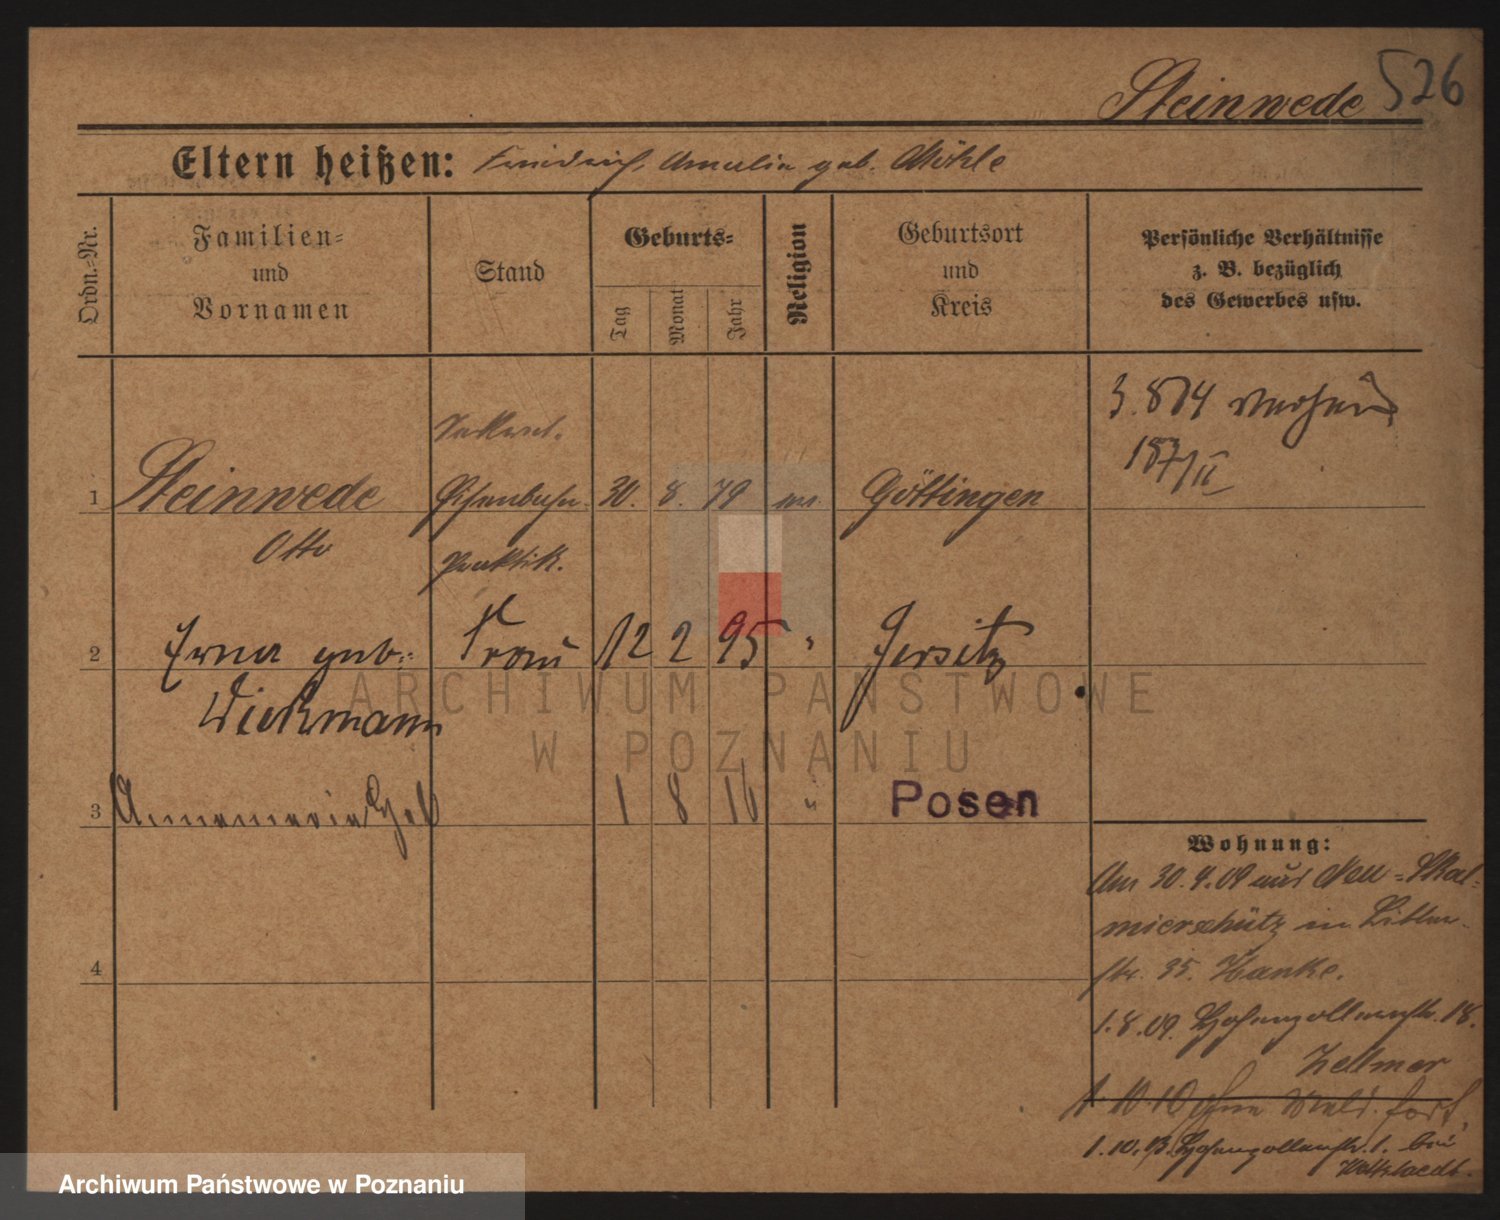 Steinwede 526
Eltern heißen: Friedrich, Amalie geb. Möhle
Ordn.-Nr.
Familien-
und
Vornamen
Stand
Geburts-
Tag
Monat
Jahr
Religion
Geburtsort
und
Kreis
Persönliche Verhältnisse
z. B. bezüglich
des Gewerbes usw.
3.8.14
187/II
1 Steinwede Eisenbahn 30. 8. 79 ev. Göttingen
Otto Praktik.
2 Erna geb. Frau 12 2 95 " Jersitz
Wiekmann
3 Annemarie 1 8 16 " Posen
4
Wohnung:
Am 30.4.09 aus Neu-Skal-
mierschütz in
str. 35. Hanke.
1.8.09. Hohenzollernstr. 18.
Zellmer
1.10.10 ohne Meld. fort,
1.10.13. Hohenzollernstr. 1. bei
ARCHIWUM PAŃSTWOWE
W POZNANIU
Archiwum Państwowe w Poznaniu